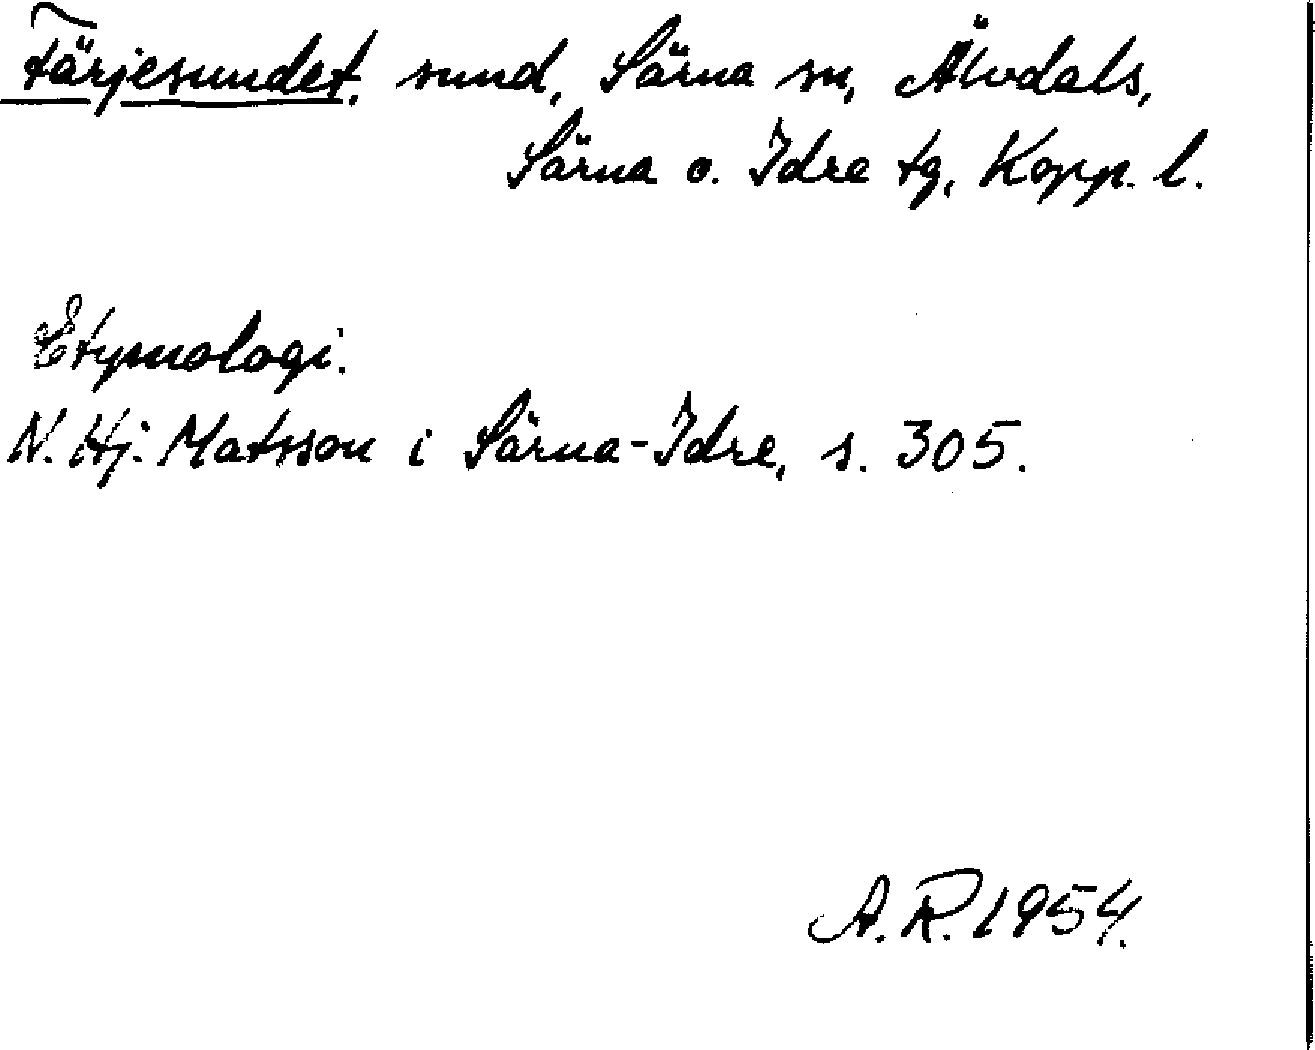 Färjesundet, sund, Särna sn, Älvdals,
Särna o. Idre tg, Kopp. l.
Etymologi.
N. Hj. Matsson i Särna-Idre, s. 305.
A. R. 1954.